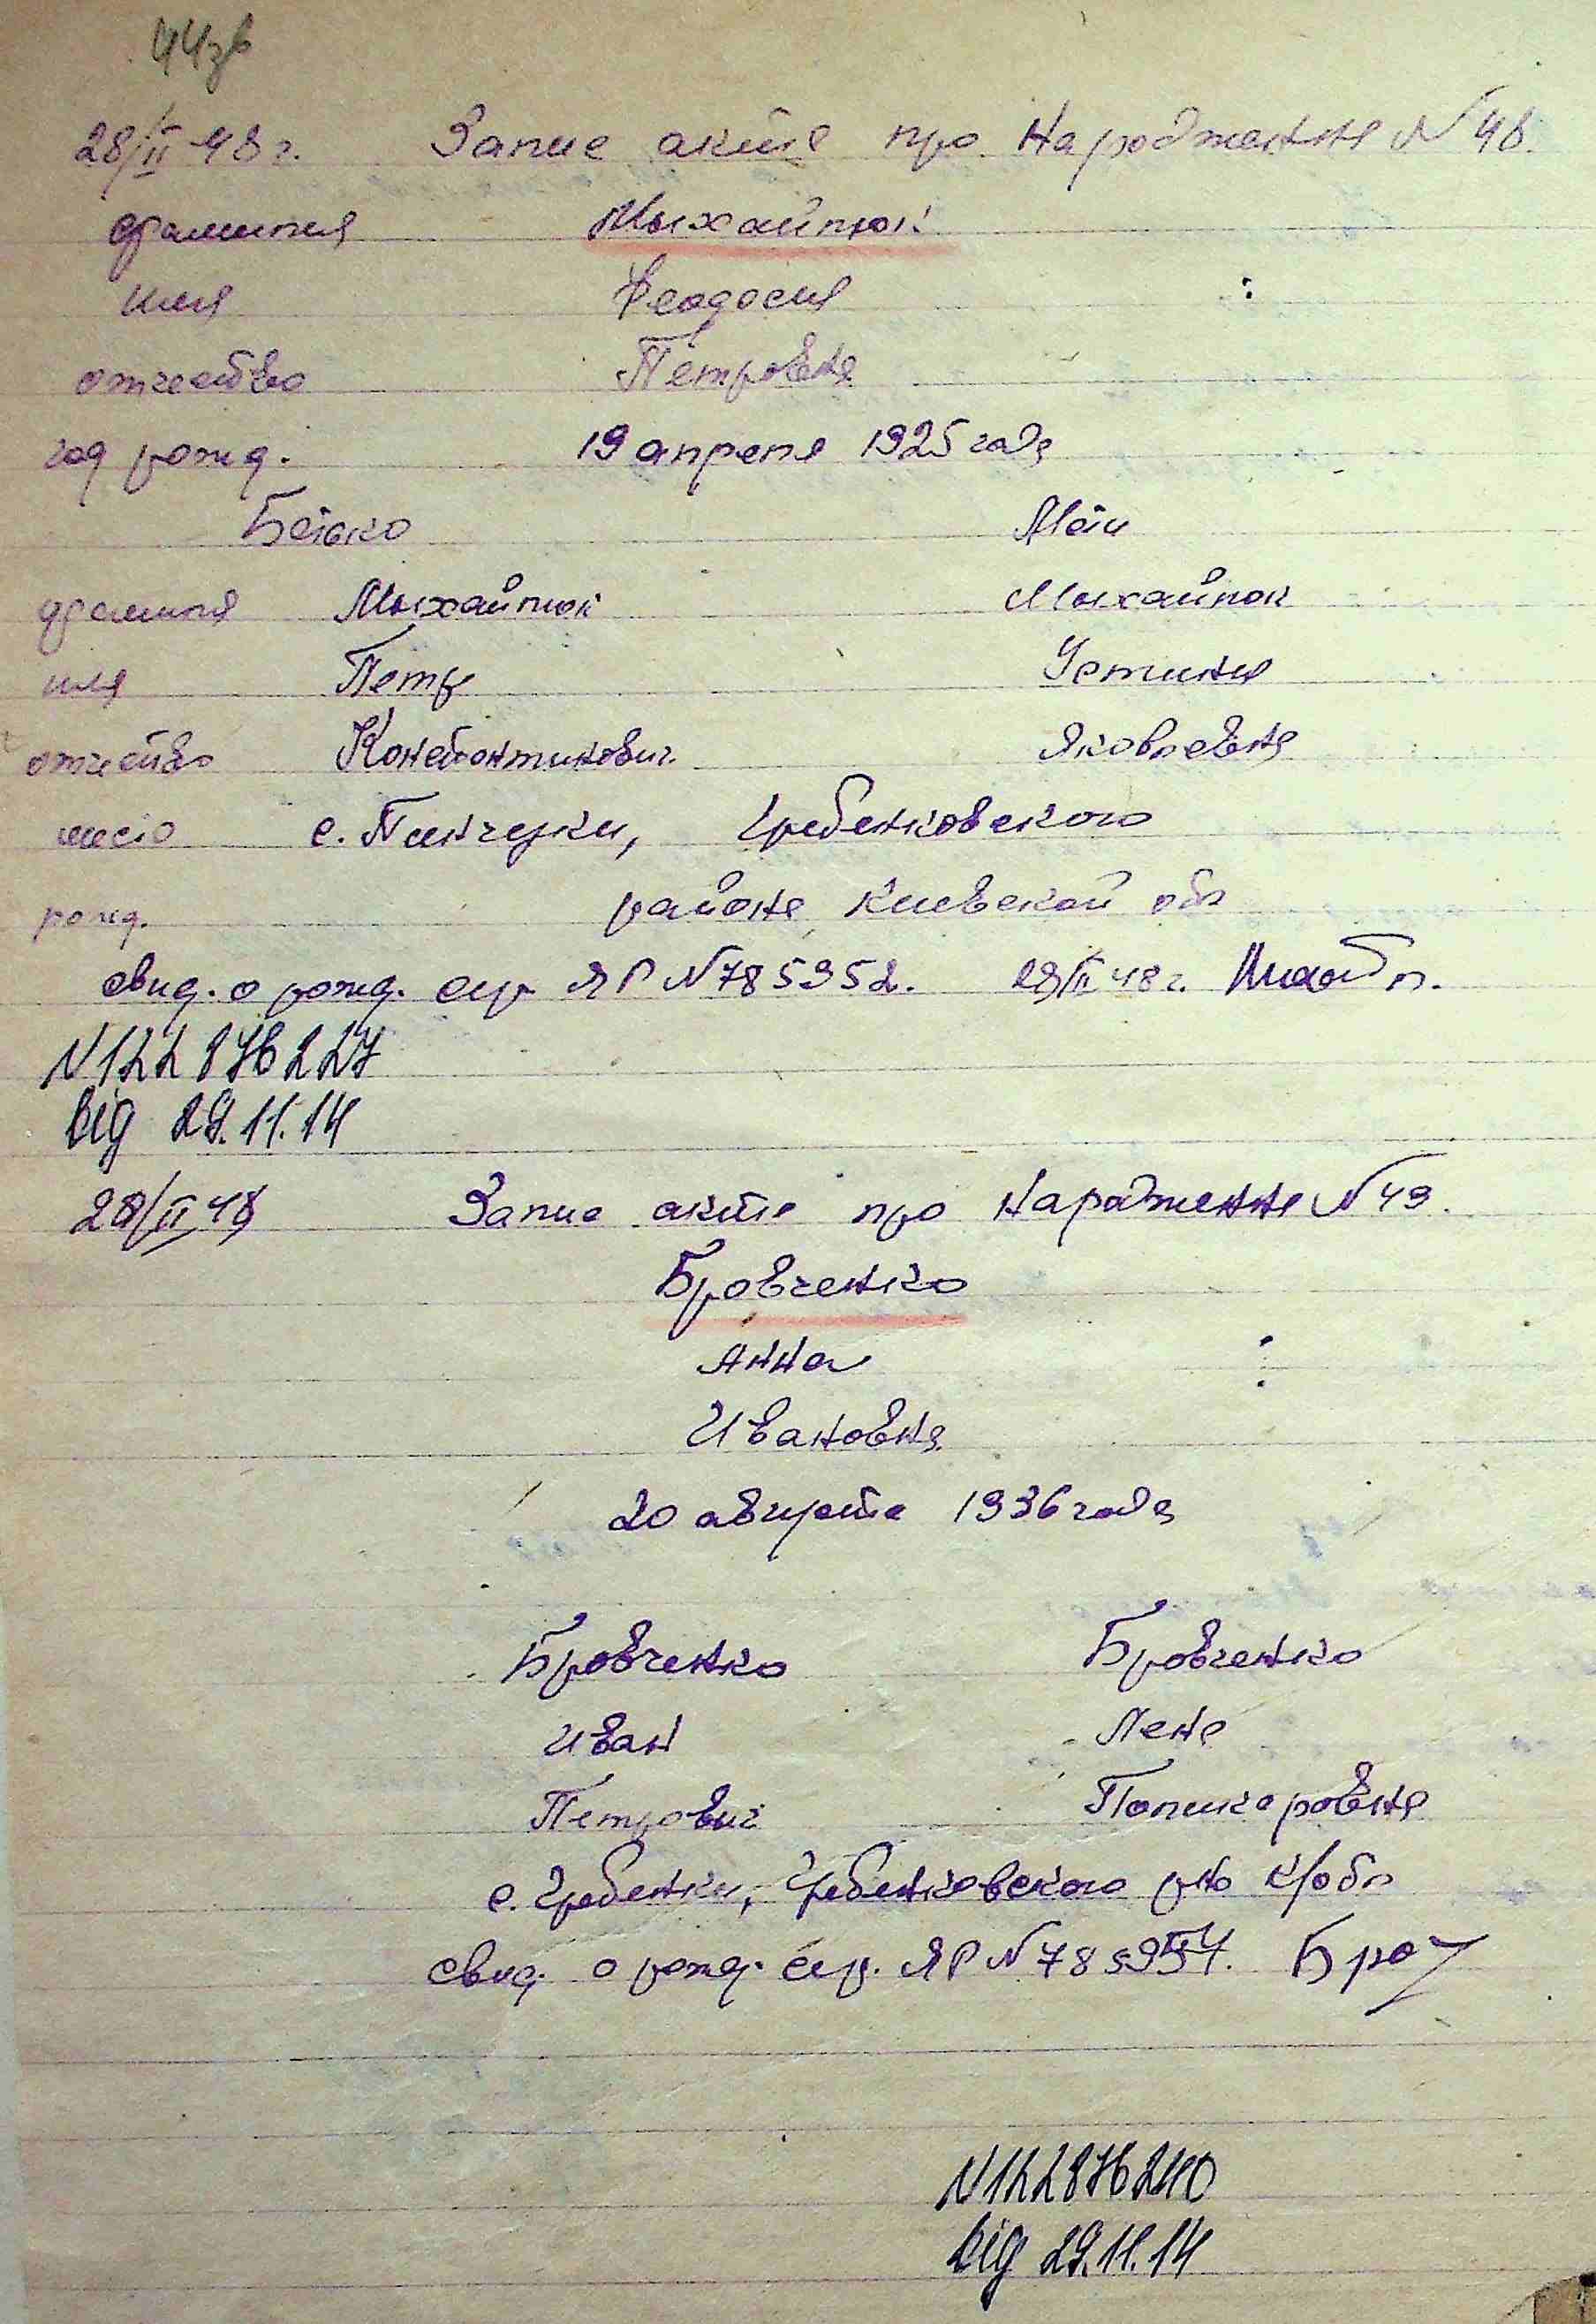 44зв
28/II 48 г. Запис акта про Народження N 48.
фамилия Мыхайлюк
имя Феодосия
отчество Петровна
год рожд. 19 апреля 1925 года
Батько Мати
фамилия Мыхайлюк Мыхайлюк
имя Петр Устиния
отчество Констонтинович Яковлевна
место с. Пинчуки, Гребенковского
рожд. района Киевской обл
свид. о рожд. сер ЯР N 785952. 28/II 48 г.
N 122876227
від 29.11.14
28/II 48 Запис акта про Народження N 49.
Бровченко
Анна
Ивановна
20 августа 1936 года
Бровченко Бровченко
Иван Лена
Петрович Поликаровна
с. Гребенки, Гребенковского р-на К/обл
свид. о рожд. сер. ЯР N 785954. Бро
N 122876240
від 29.11.14